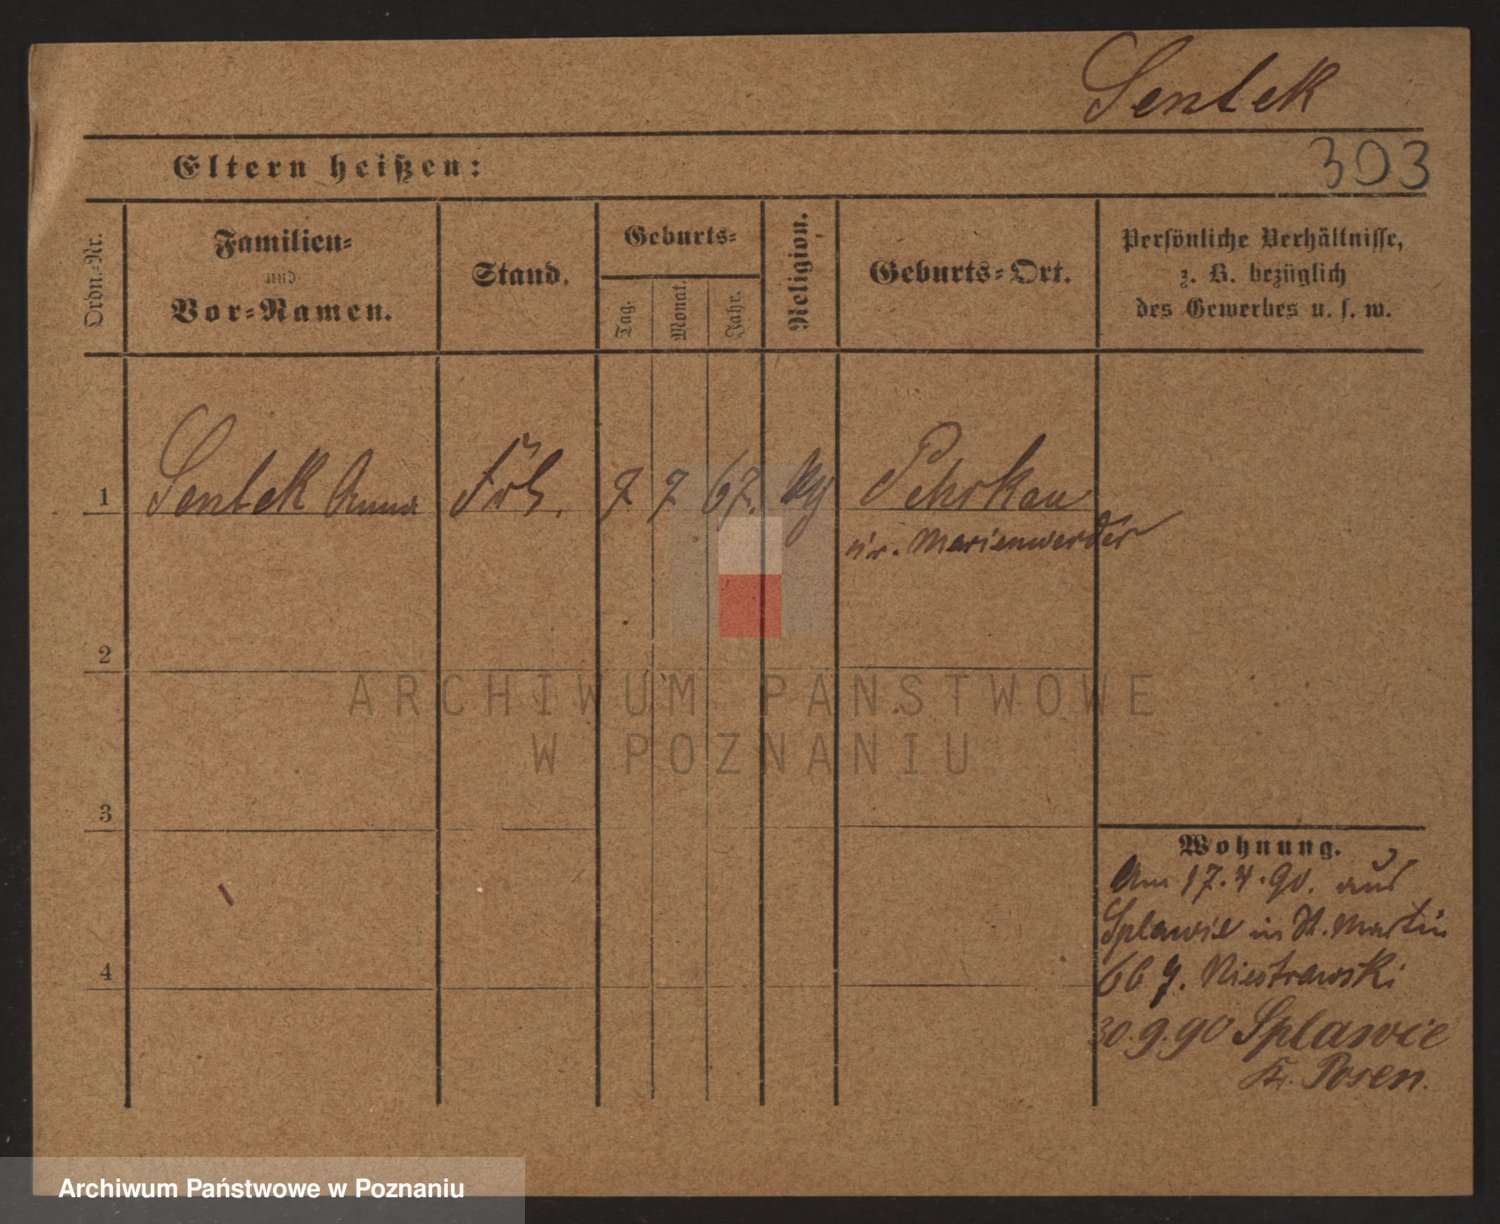 Sentek
Eltern heißen:
303
Ordn.-Nr.
Familien-
und
Vor-Namen.
Stand.
Geburts-
Tag.
Monat.
Jahr.
Religion.
Geburts-Ort.
Persönliche Verhältnisse,
z. B. bezüglich
des Gewerbes u. s. w.
1 Sentek Anna 7 7 67.
Marienwerder
2
ARCHIWUM PAŃSTWOWE
W POZNANIU
3
Wohnung.
Am 17.4.90. aus
Splawie in St. Martin
66
4
30.9.90 Splawie
Kr. Posen.
Archiwum Państwowe w Poznaniu